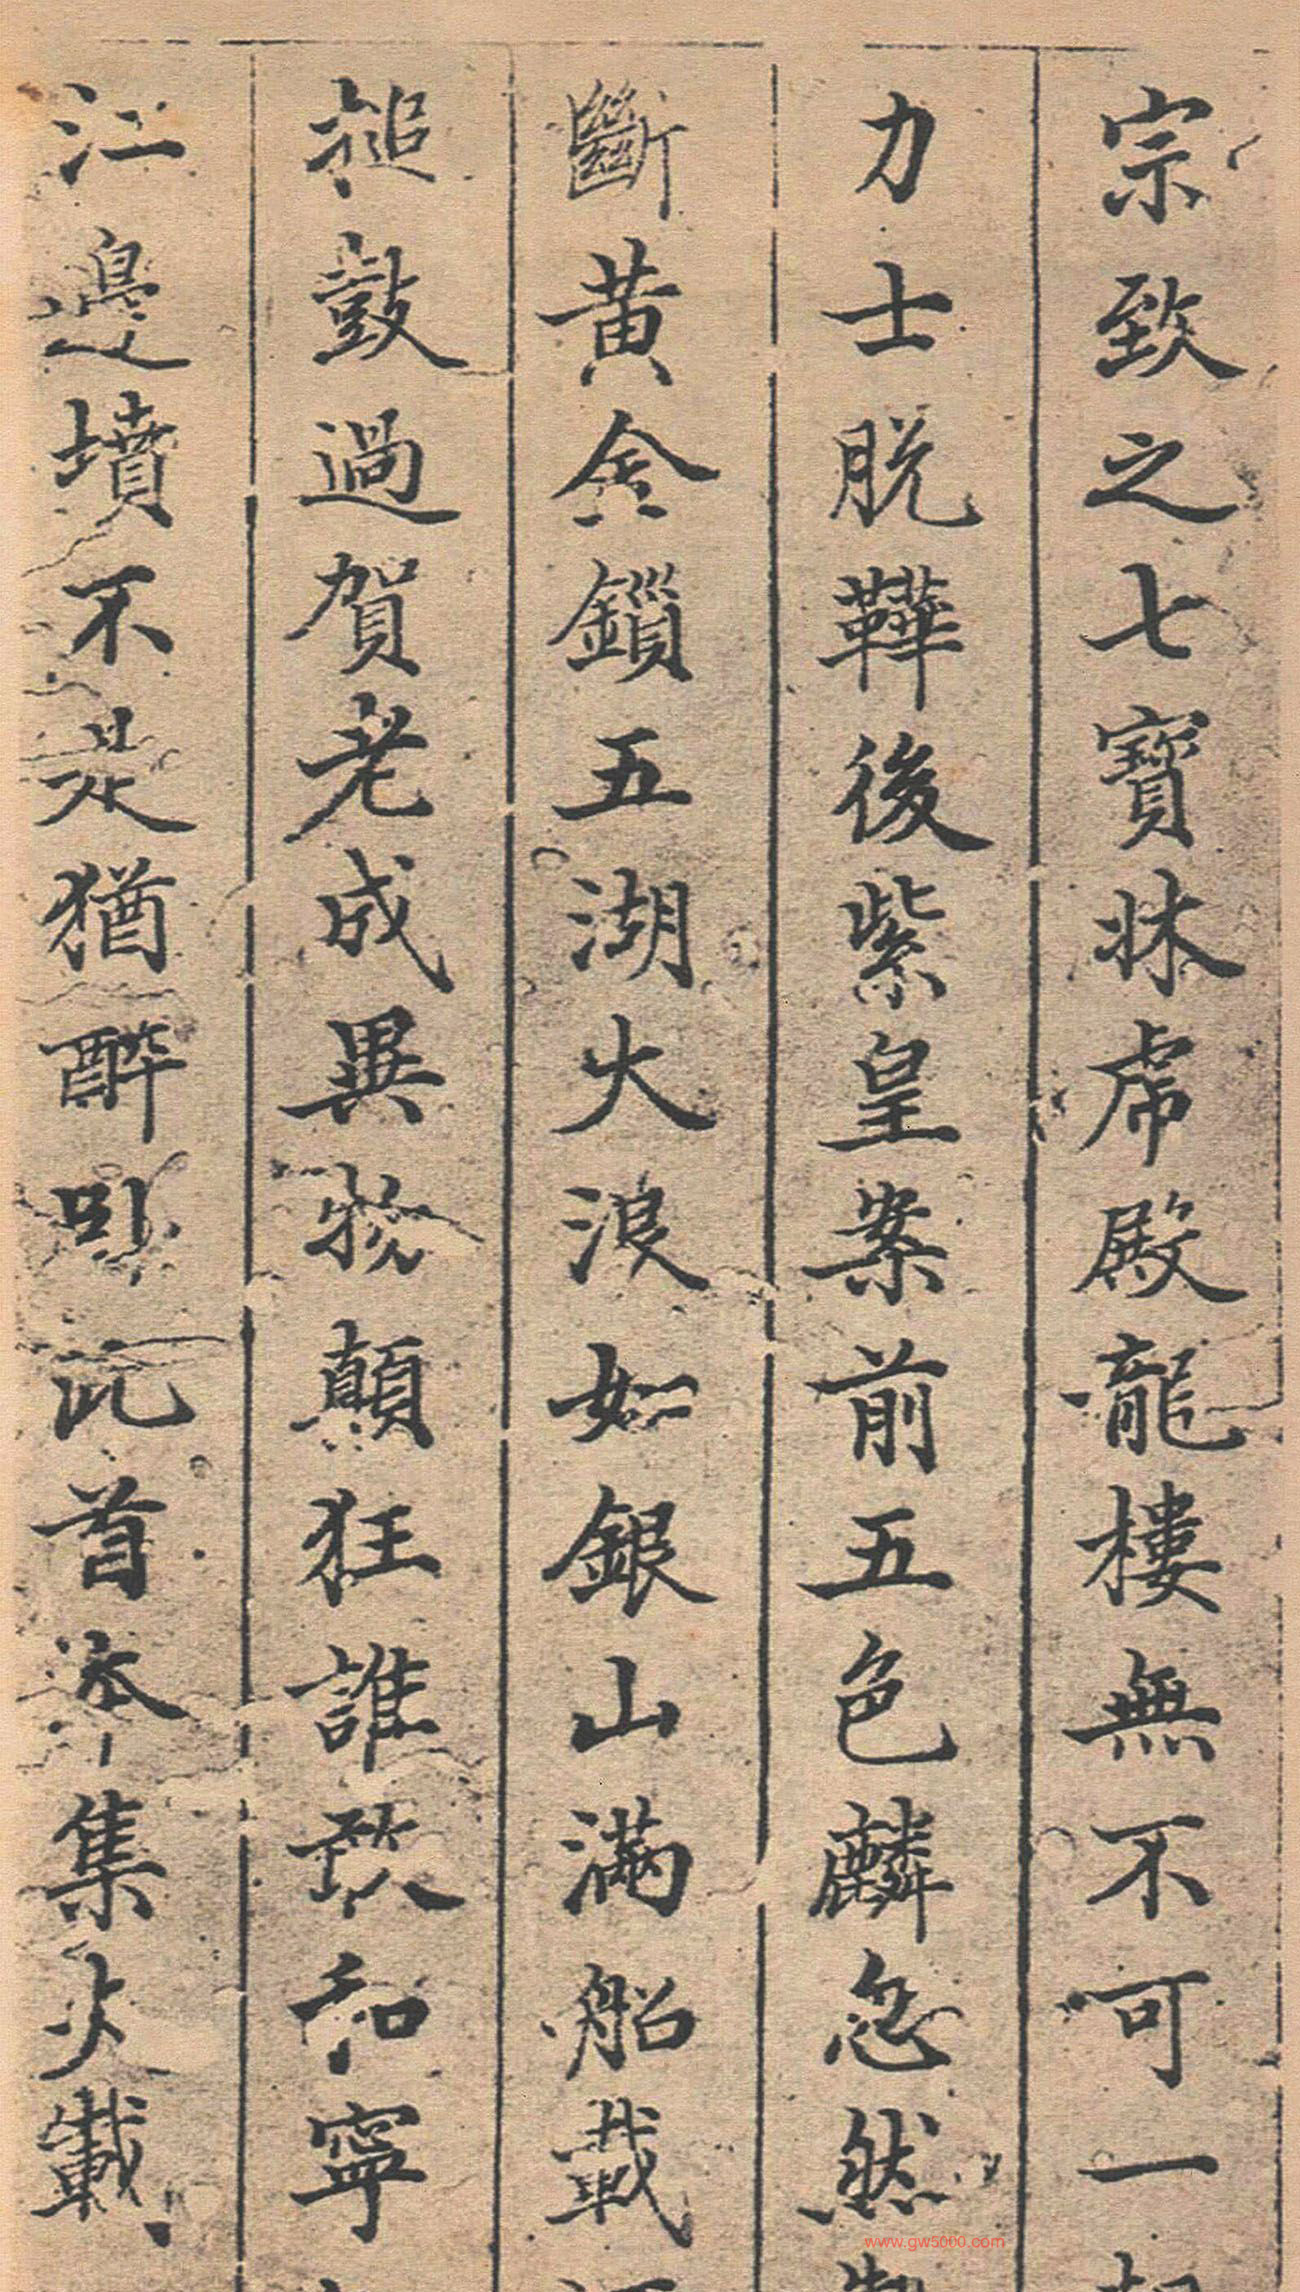 宗致之七寶牀虎殿龍樓無不可一
力士脫鞾後紫皇案前五色麟忽然
斷黃金鎖五湖大浪如銀山滿船載
搥鼓過賀老成異物顛狂誰敢和寧
江邊墳不是猶醉卧此首本集少載
www.gw5000.com